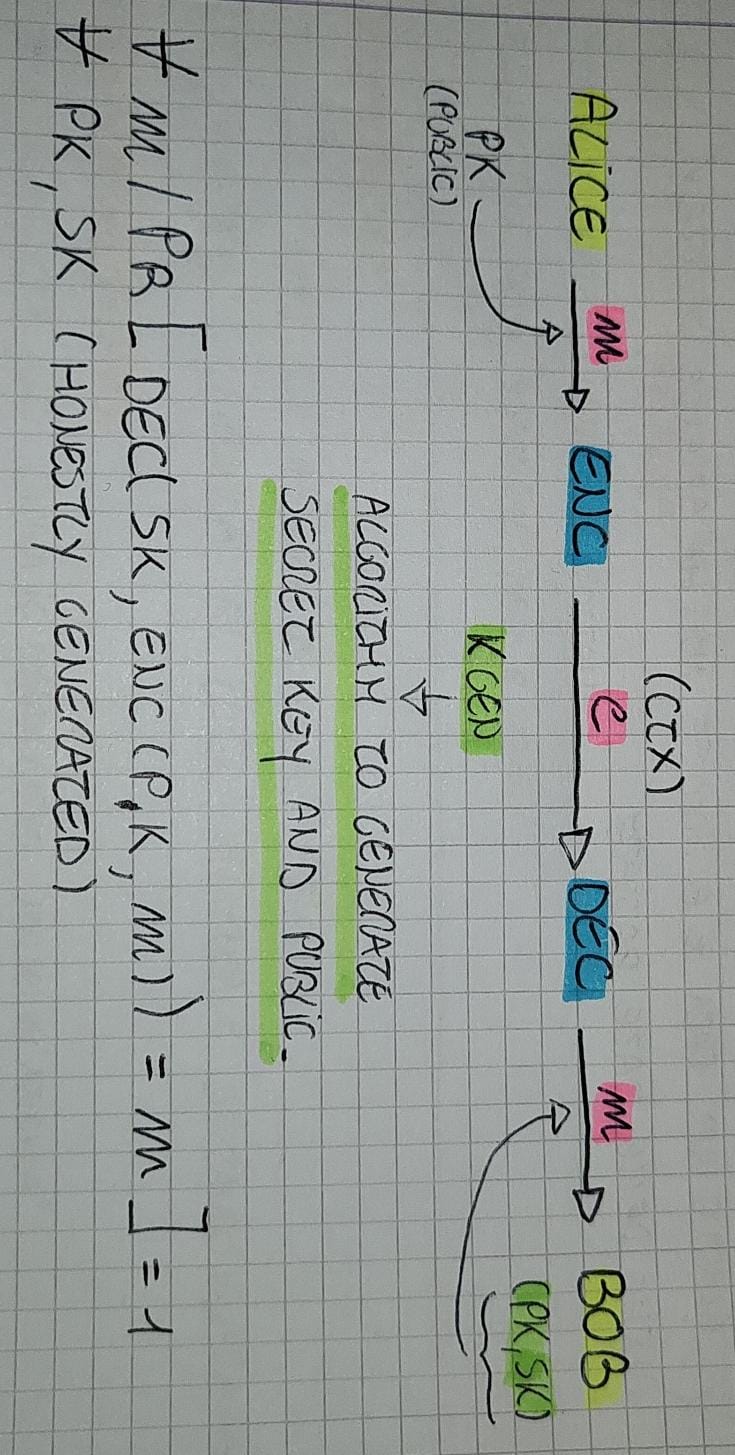 (CTX)
ALICE m ENC e DEC m BOB
(PK,SK)
PK
(PUBLIC)
KGEN
ALGORITHM TO GENERATE
SECRET KEY AND PUBLIC.
∀ m / PR [ DEC( SK, ENC (P,K, m)) = m ] = 1
∀ PK, SK (HONESTLY GENERATED)